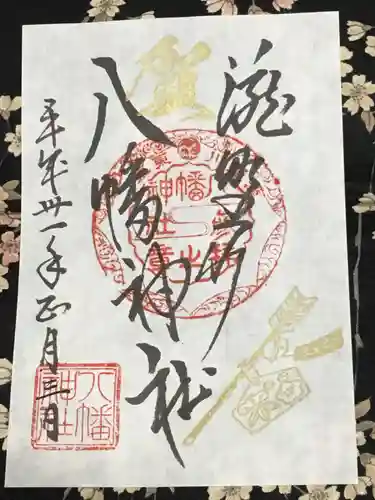 瀧野川
賀
八幡神社
平成卅一年正月三日
八幡
神社